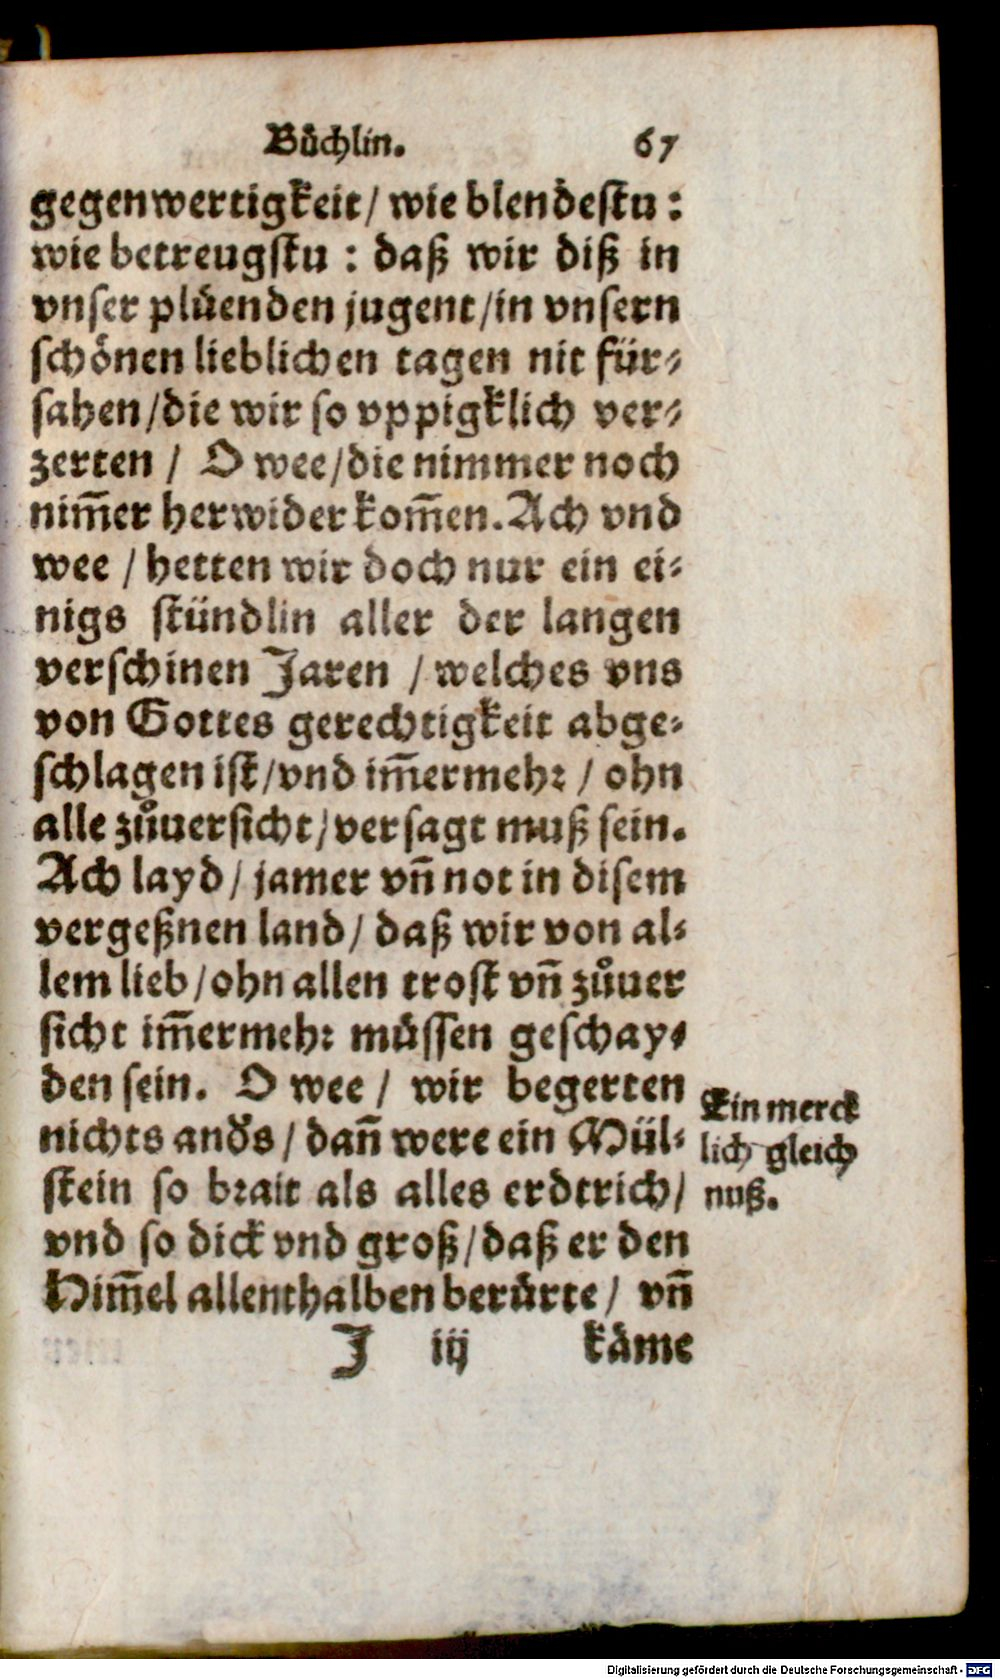 Bůchlin. 67
gegenwertigkeit/ wie blendestu:
wie betreugstu : daß wir diß in
vnser plůenden jugent/in vnsern
schönen lieblichen tagen nit für⸗
sahen/die wir so vppigklich ver⸗
zerten / O wee/die nimmer noch
nim̃er herwider kom̃en. Ach vnd
wee / hetten wir doch nur ein ei⸗
nigs stündlin aller der langen
verschinen Jaren / welches vns
von Gottes gerechtigkeit abge⸗
schlagen ist/vnd im̃ermehꝛ / ohn
alle zůuersicht/versagt muß sein.
Ach layd/ jamer vñ not in disem
vergeßnen land/ daß wir von al⸗
lem lieb/ohn allen trost vñ zůuer
sicht im̃ermehꝛ můssen geschay⸗
den sein. O wee/ wir begerten
nichts anďs/ dañ were ein Mül⸗
stein so bꝛait als alles erdtrich/
vnd so dick vnd groß/daß er den
Him̃el allenthalben berůrte/ vñ
J iij kåme
Ein merck
lich gleich
nuß.
Digitalisierung gefördert durch die Deutsche Forschungsgemeinschaft - DFG